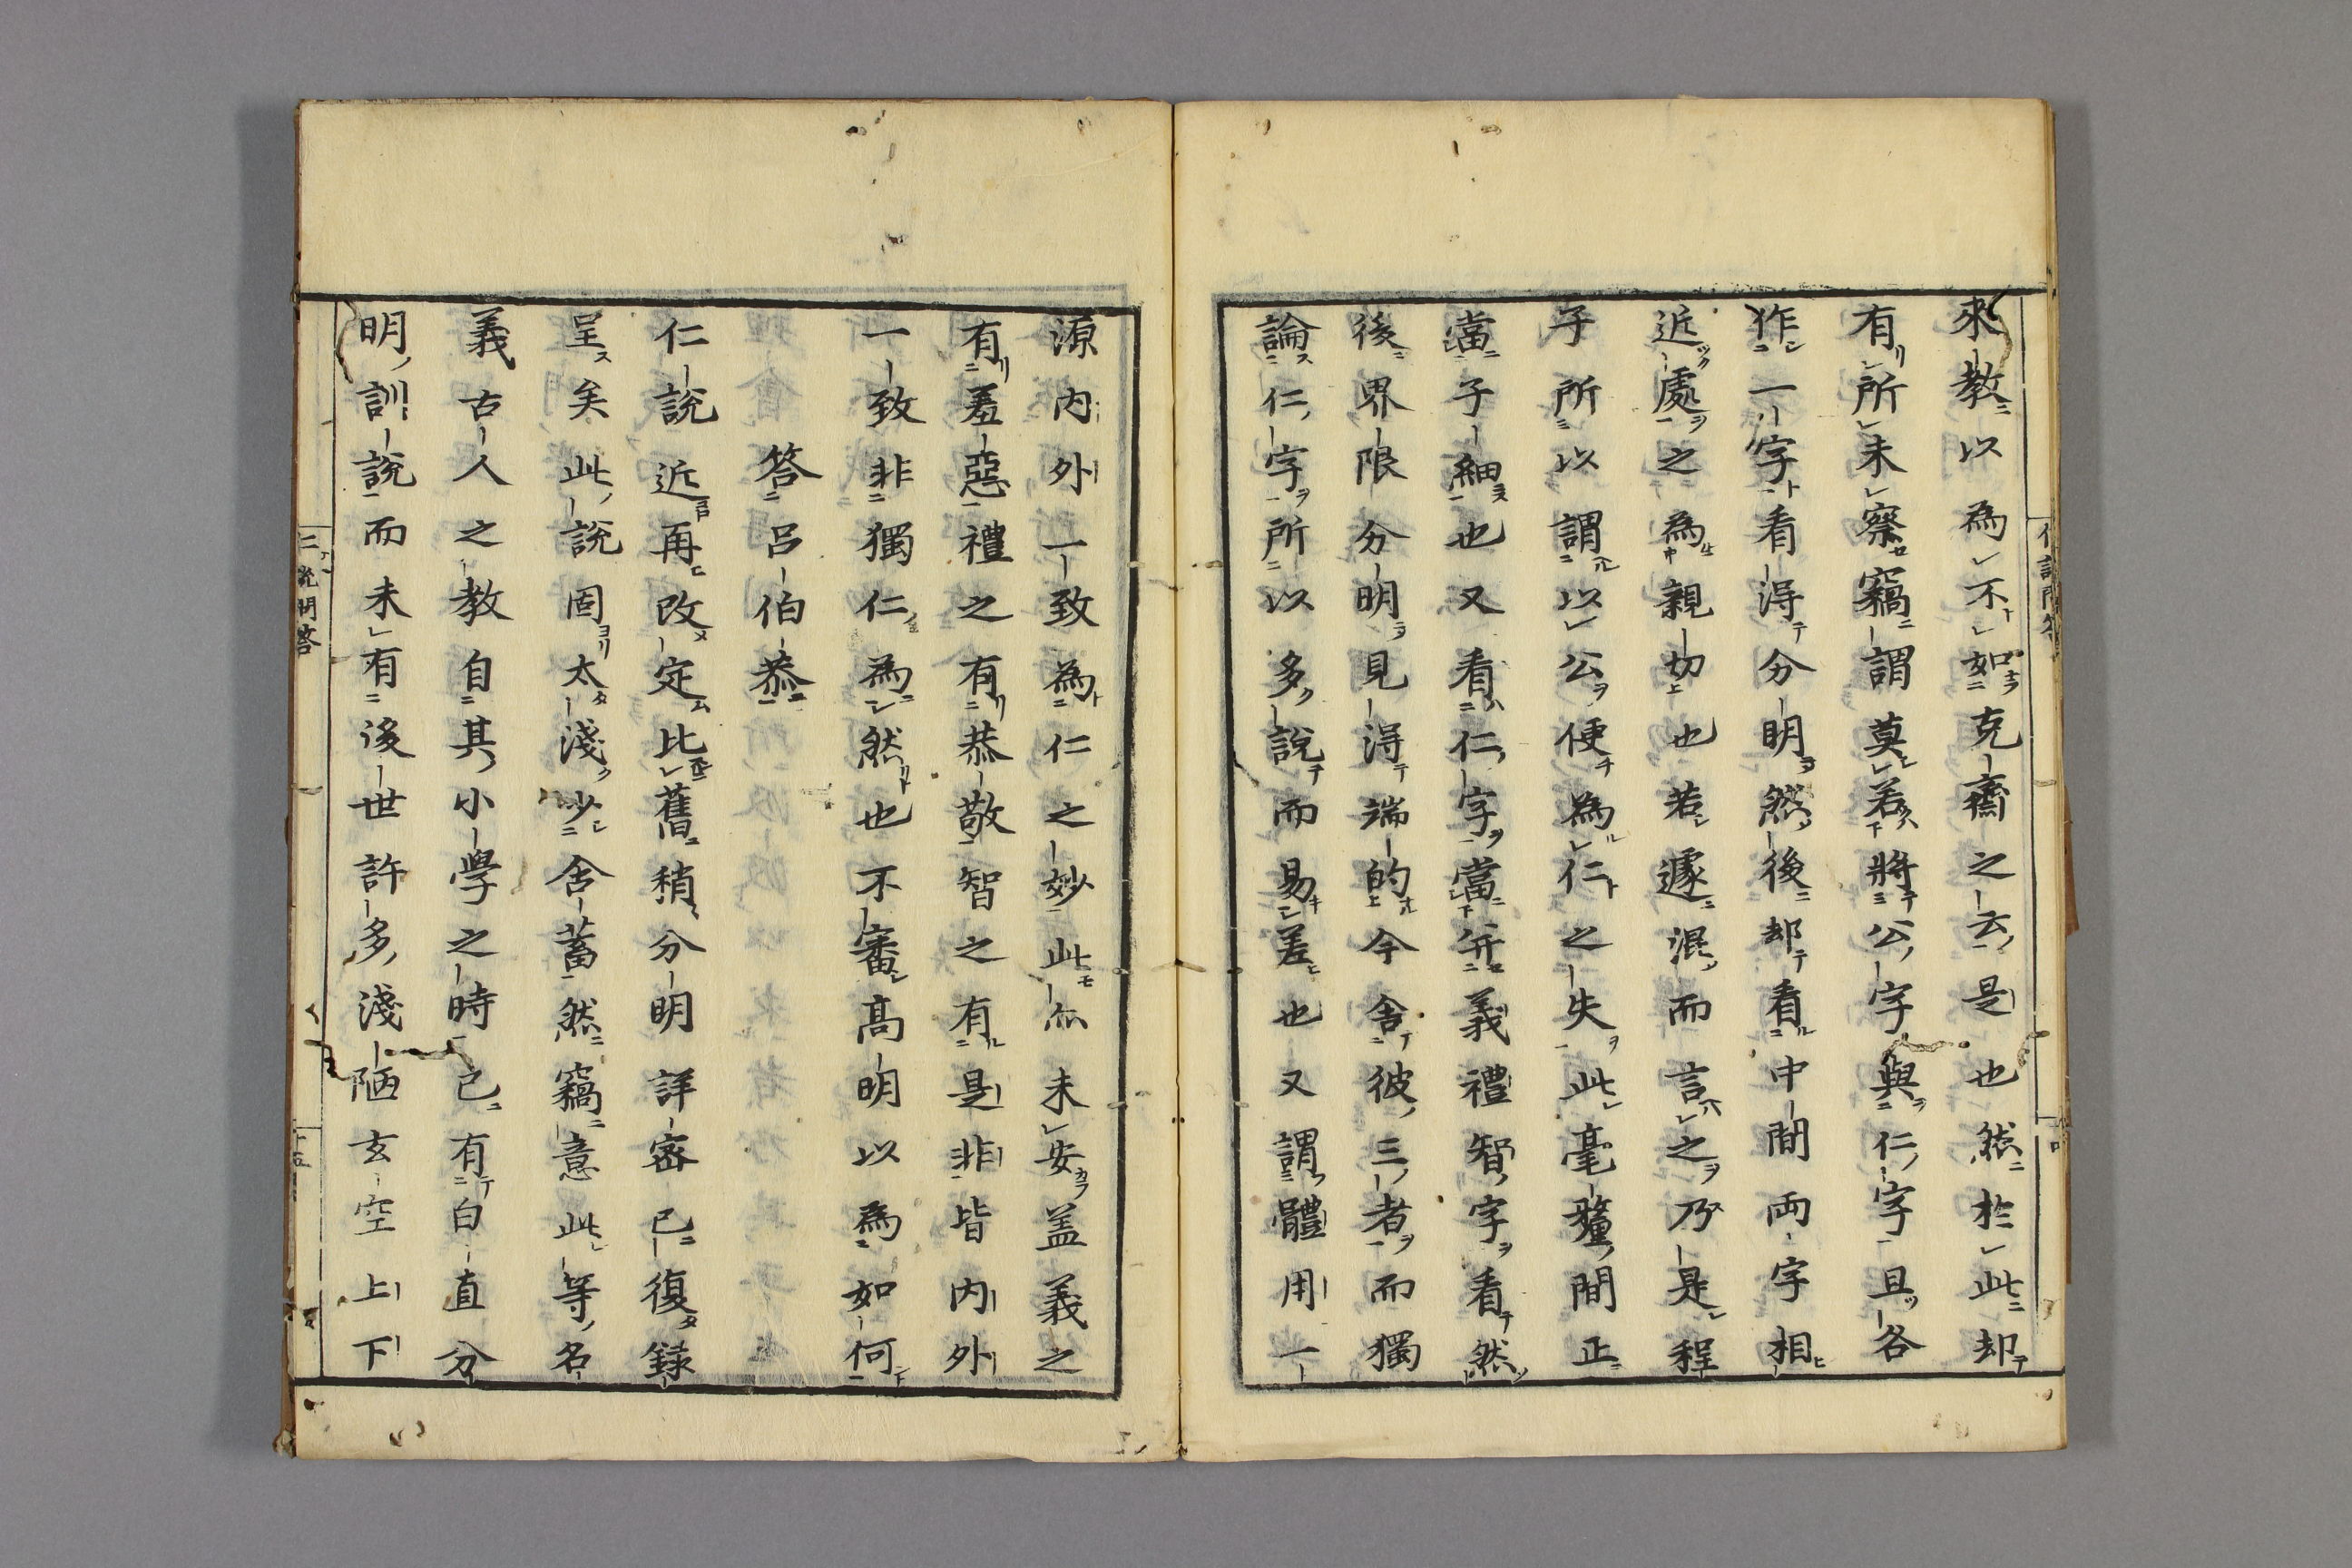 來教以為不如克齋之云是也然於此却
有所未察竊謂莫若將公字與仁字且各
作一字看得分明然後却看中間両字相
近處之為親切也若遽混而言之乃是程
子所以謂以公便為仁之失此毫釐間正
當子細也又看仁字當并義禮智字看然
後界限分明見得端的今舎彼三者而獨
論仁字所以多說而易差也又謂體用一
源内外一致為仁之妙此亦未安盖義之
有羞惡禮之有恭敬智之有是非皆内外
一致非獨仁為然也不審高明以為如何
答呂伯恭
仁說近再改定比舊稍分明詳密已復録
呈矣此說固太淺少含蓄然竊意此等名
義古人之教自其小學之時已有白直分
明訓說而未有後世許多淺陋玄空上下
仁說問答